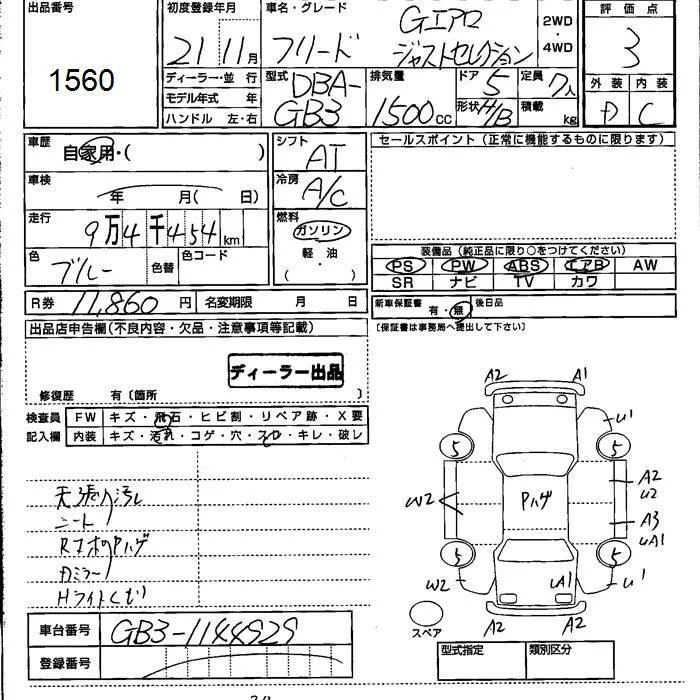 出品番号
1560
初度登録年月
21 11月
車名・グレード
Gエアロ
フリード ジャストセレクション
2WD
・
4WD
評価点
3
外装 内装
D C
ディーラー・並 行
モデル年式 年
ハンドル 左・右
型式
DBA-
GB3
排気量
1500cc
ドア 5
形状 H/B
定員 7人
積載 kg
車歴
自家用・( )
車検
年 月( 日)
走行
9万4千454km
色
ブルー
色替
色コード
シフト
AT
冷房
A/C
燃料
ガソリン
軽・油
( )
セールスポイント(正常に機能するものに限ります)
装備品(純正品に限り○をつけてください)
PS PW ABS エアB AW
SR ナビ TV カワ
R券 11,860円 名変期限 月 日
新車保証書 有・無 後日品
(保証書は事務局へ提出して下さい)
出品店申告欄(不良内容・欠品・注意事項等記載)
ディーラー出品
修復歴 有〔箇所 〕
検査員
記入欄
FW キズ・飛石・ヒビ割・リペア跡・X要
内装 キズ・汚れ・コゲ・穴・スレ・キレ・破レ
天張り汚レ
シート
Rナンバー
Dミラー
Hライトくもり
A2 A1
U1
5 5
W2
Pハゲ
A2
U2
A3
UA1
5 5
W2 UA1 U1
A2 A2
スペア
車台番号 GB3-1144929
登録番号
型式指定 類別区分